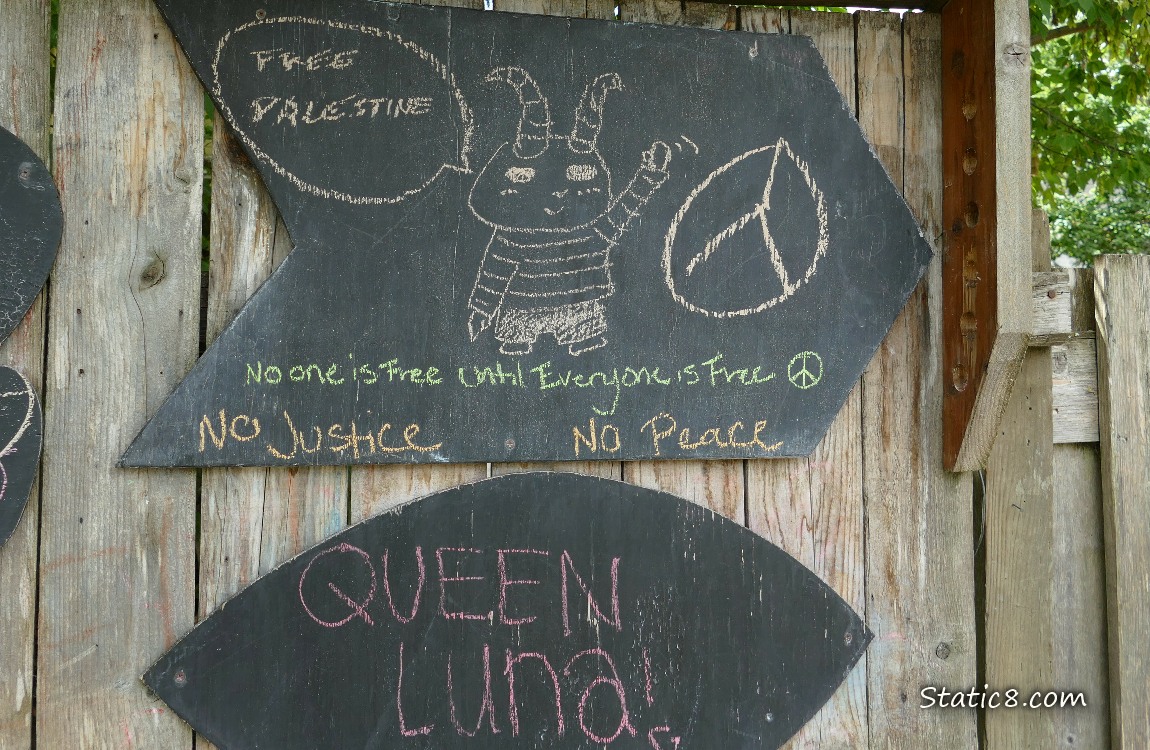 FREE
PALESTINE
No one is Free Until Everyone is Free
No Justice No Peace
QUEEN
Luna!
Static8.com